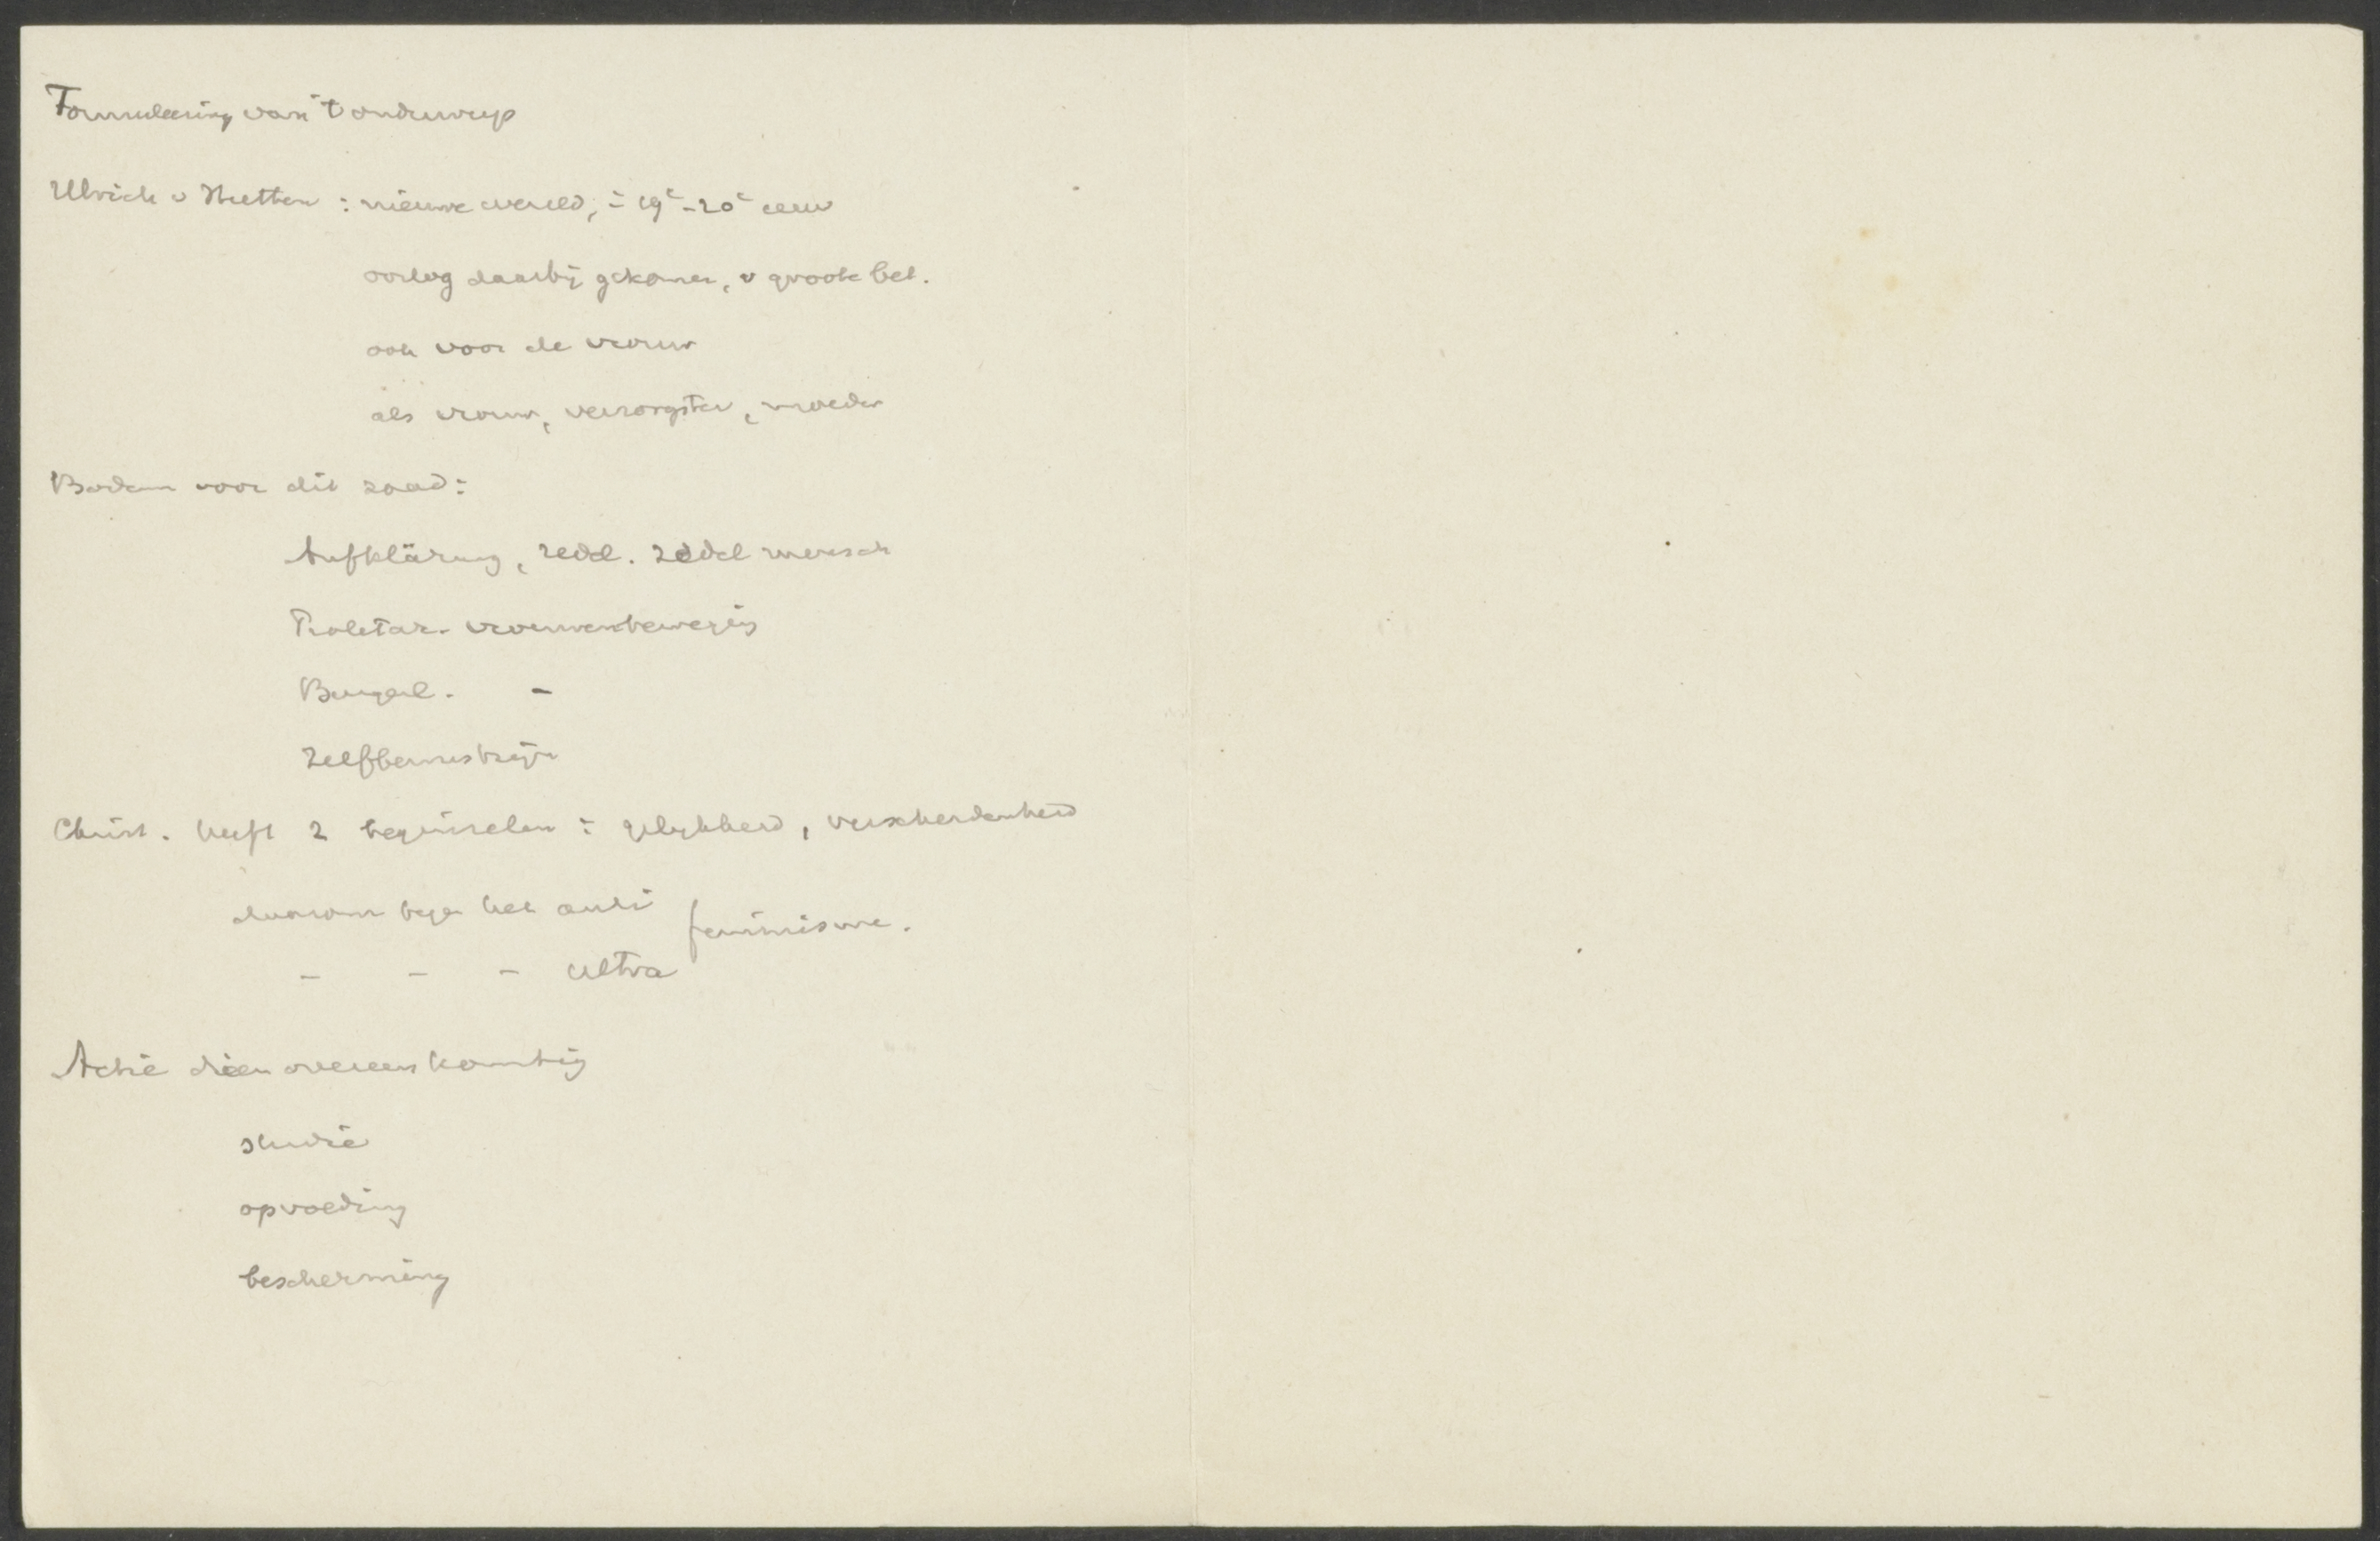 Formuleering van 't onderwerp
Ulrich v Hutten : nieuwe wereld, : 19e - 20e eeuw
oorlog daarbij gekomen, v groote bet.
ook voor de vrouw
als vrouw, verzorgster, moeder
Bodem voor dit zaad :
Aufklärung, redel. zedel mensch
Proletar. vrouwenbeweging
Burgerl. -
Christ. heeft 2 beginselen : gelijkheid, verscheidenheid
daarom tegen het anti
feminisme.
- - - ultra
Actie dien overeenkomstig
studie
opvoeding
bescherming